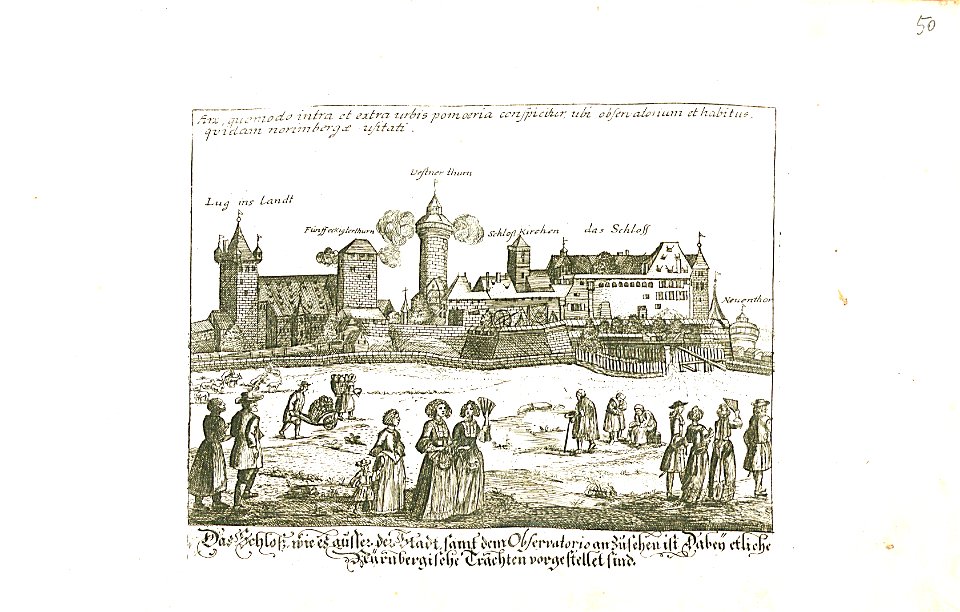 50
Arx, quomodo intra et extra urbis pomœria conspicitur, ubi observatorium et habitus,
quidam norimbergæ usitati.
Vestner thurn
Lug ins Landt
Fünffeckigterthurn
Schloß Kirchen
das Schloss
Neuenthor
Das Schloß, wie es ausser der Stadt, samt dem Observatorio anzusehen ist Dabey etliche
Nürnbergische Trachten vorgestellet sind.